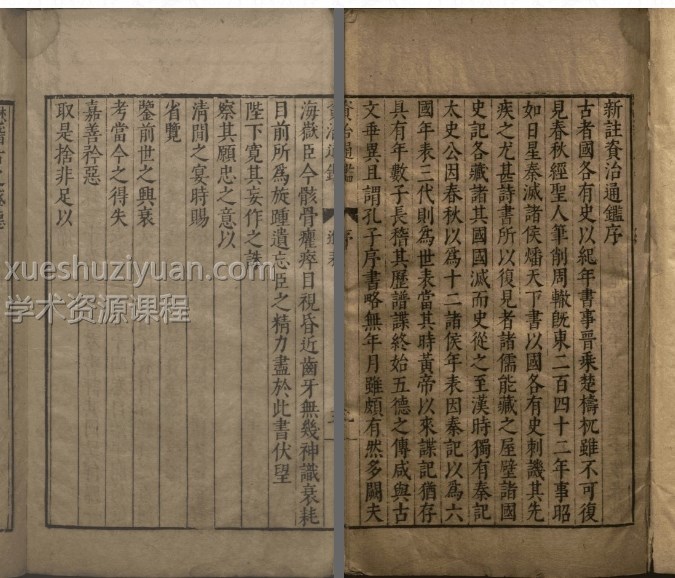 新註資治通鑑序
古者國各有史以紀年書事晉乘楚檮杌雖不可復
見春秋經聖人筆削周轍既東二百四十二年事昭
如日星秦滅諸侯燔天下書以國各有史刺譏其先
疾之尤甚詩書所以復見者諸儒能藏之屋壁諸國
史記各藏諸其國國滅而史從之至漢時獨有秦記
太史公因春秋以爲十二諸侯年表因秦記以爲六
國年表三代則爲世表當其時黃帝以來諜記猶存
具有年數子長稽其歷譜諜終始五德之傳咸與古
文乖異且謂孔子序書略無年月雖頗有然多闕夫
資治通鑑 序
海嶽臣今骸骨癯瘁目視昏近齒牙無幾神識衰耗
目前所爲旋踵遺忘臣之精力盡於此書伏望
陛下寬其妄作之誅
察其願忠之意以
清閒之宴時賜
省覽
鑒前世之興衰
考當今之得失
嘉善矜惡
取是捨非足以
xueshuziyuan.com
学术资源课程